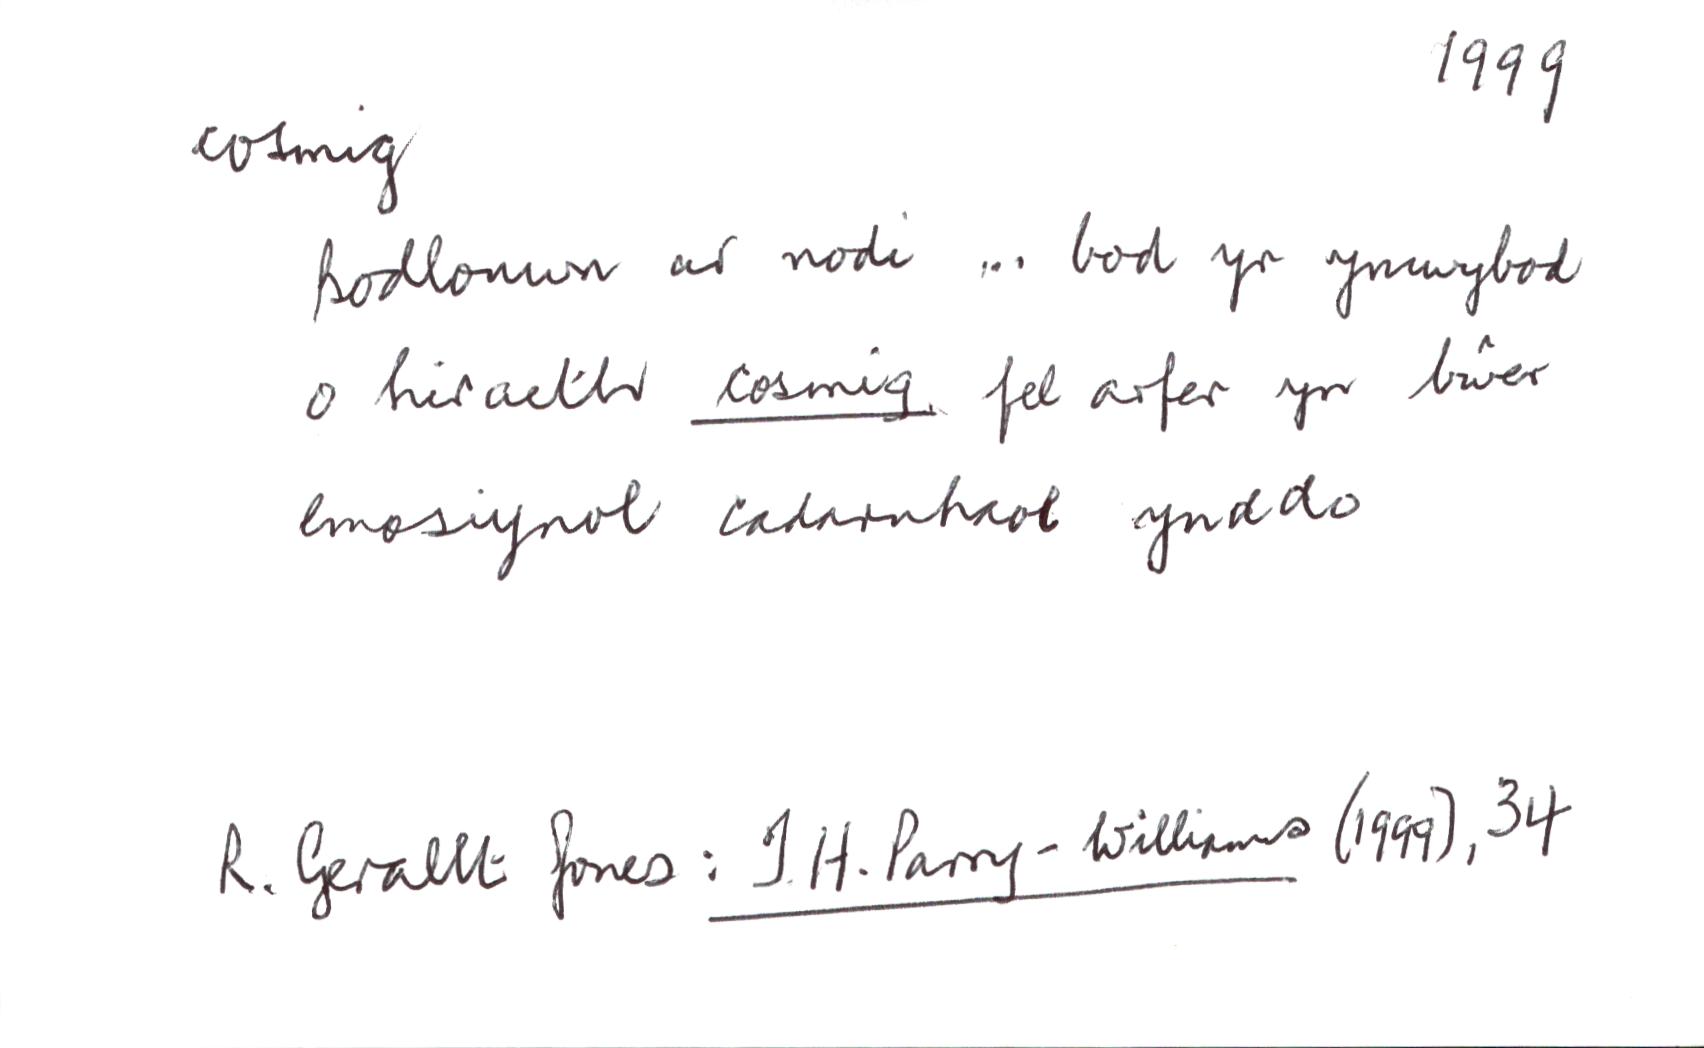 1999
cosmig
bodlonwn ar nodi ... bod yr ymwybod
o hiraeth cosmig fel arfer yn bŵer
emosiynol cadarnhaol ynddo
R. Gerallt Jones : T. H. Parry-Williams (1999), 34